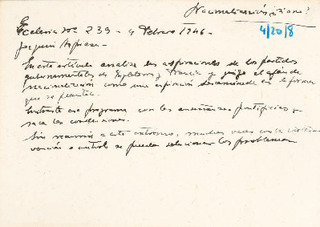 Nacionalizaciones
4/20/8
Ecclesia Nº 239 - 9 Febrero 1946.
Joaquín Azpiazu
En este artículo analiza las aspiraciones de los partidos
gubernamentales de Inglaterra y Francia y el afán de
nacionalización como una aspiración
que se plantea.
ese programa con las enseñanzas pontificias y
saca las conclusiones.
Sin recurrir a este extremo, muchas veces con la
o control se pueden solucionar los problemas